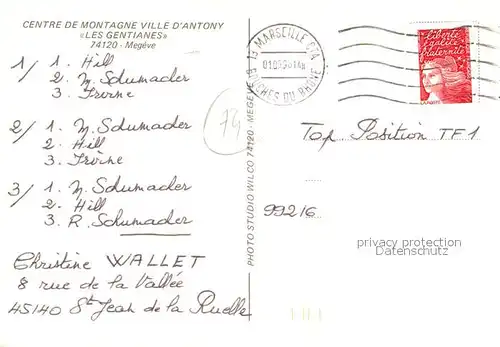 CENTRE DE MONTAGNE VILLE D'ANTONY
«LES GENTIANES»
74120 - Megève
1/ 1. Hill
2. M. Schumader
3. Irvine
2/ 1. M. Schumader
2. Hill
3. Irvine
3/ 1. M. Schumader
2. Hill
3. R. Schumader
Christine WALLET
8 rue de la Vallée
45140 St Jean de la Ruelle
74
PHOTO STUDIO WILCO 74120 - MEGEVE
13 MARSEILLE CTA
BOUCHES DU RHONE
liberté
égalité
fraternité
LA POSTE
Top Position TF1
99216
privacy protection
Datenschutz